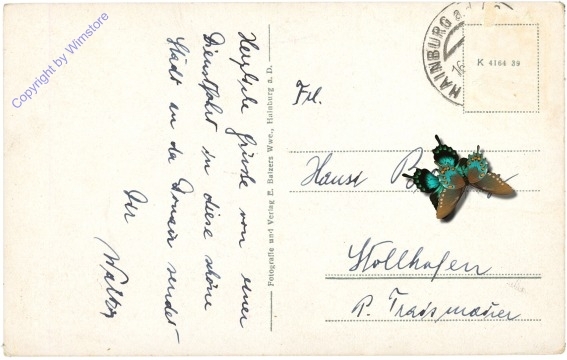 Herzliche Grüße von einer
Dienstfahrt in diese schöne
Stadt an der Donau sendet
Dir
Walter
Fotografie und Verlag E. Balzers Wwe., Hainburg a. D.
HAINBURG a.
K 4164 39
Frl.
Hansi
Stollhofen
P. Traismauer
Copyright by Wimstore